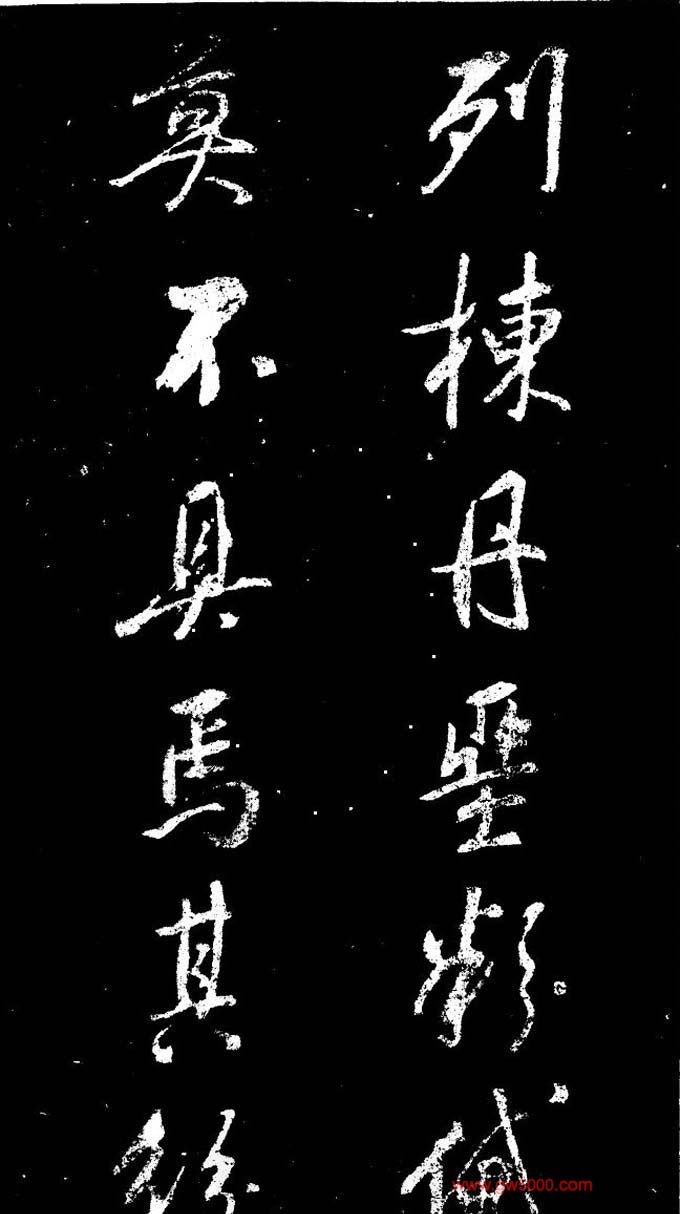 列棟丹堊
莫不具焉其餘
www.gw5000.com